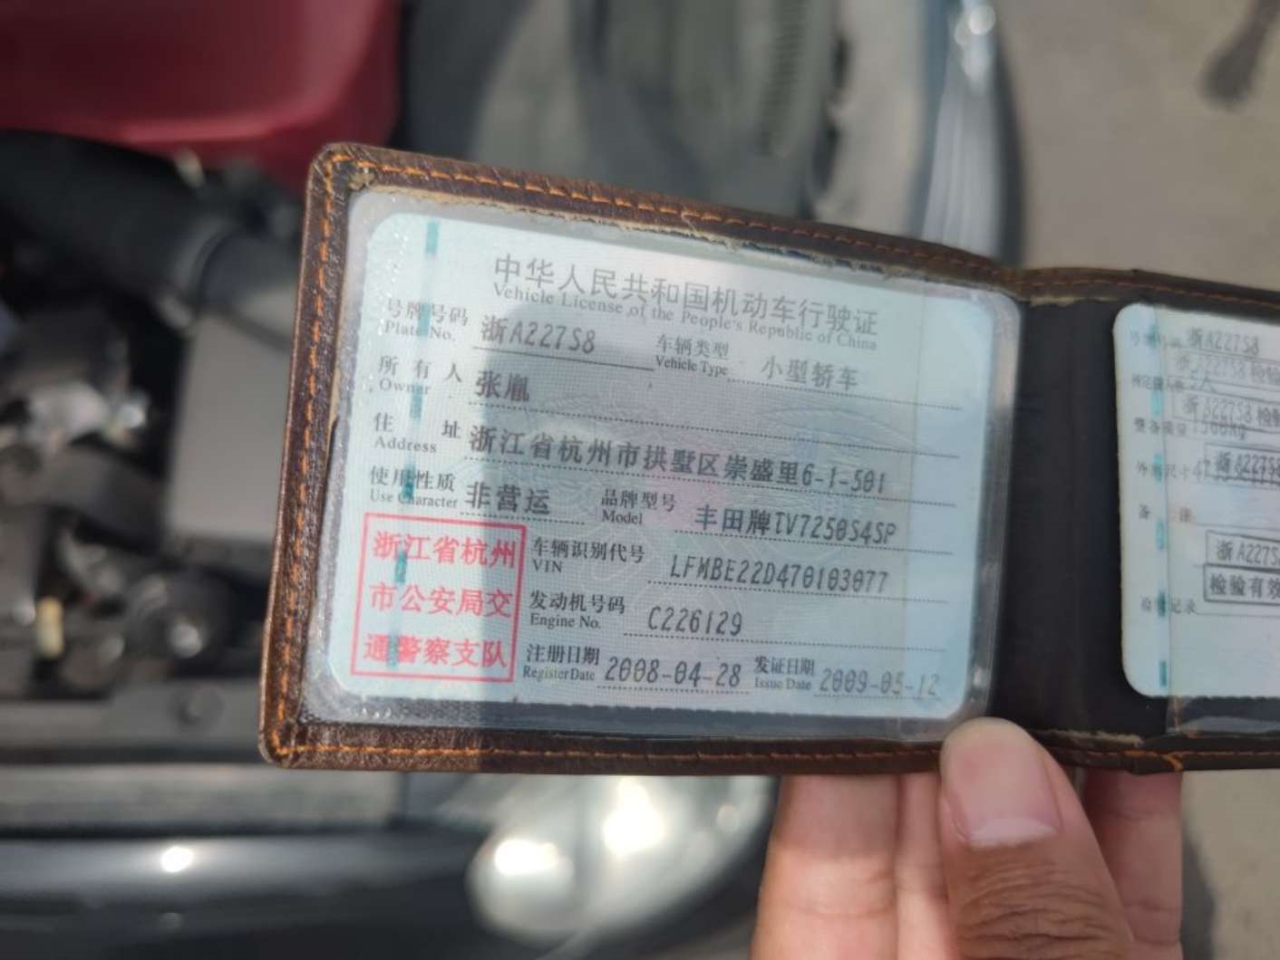 中华人民共和国机动车行驶证
Vehicle License of the People's Republic of China
号牌号码 浙A227S8 车辆类型 小型轿车
Plate No. Vehicle Type
所有人 张胤
Owner
住址 浙江省杭州市拱墅区崇盛里6-1-501
Address
使用性质 非营运 品牌型号 丰田牌TV7250S4SP
Use Character Model
浙江省杭州
市公安局交
通警察支队
车辆识别代号 LFMBE22D470103077
VIN
发动机号码 C226129
Engine No.
注册日期 2008-04-28 发证日期 2009-05-12
Register Date Issue Date
浙A227S8
浙A227S8 检
浙A227S8 检
整备质量 1500kg
浙A227S8
备 注
浙A227S
检验有效
检 记录